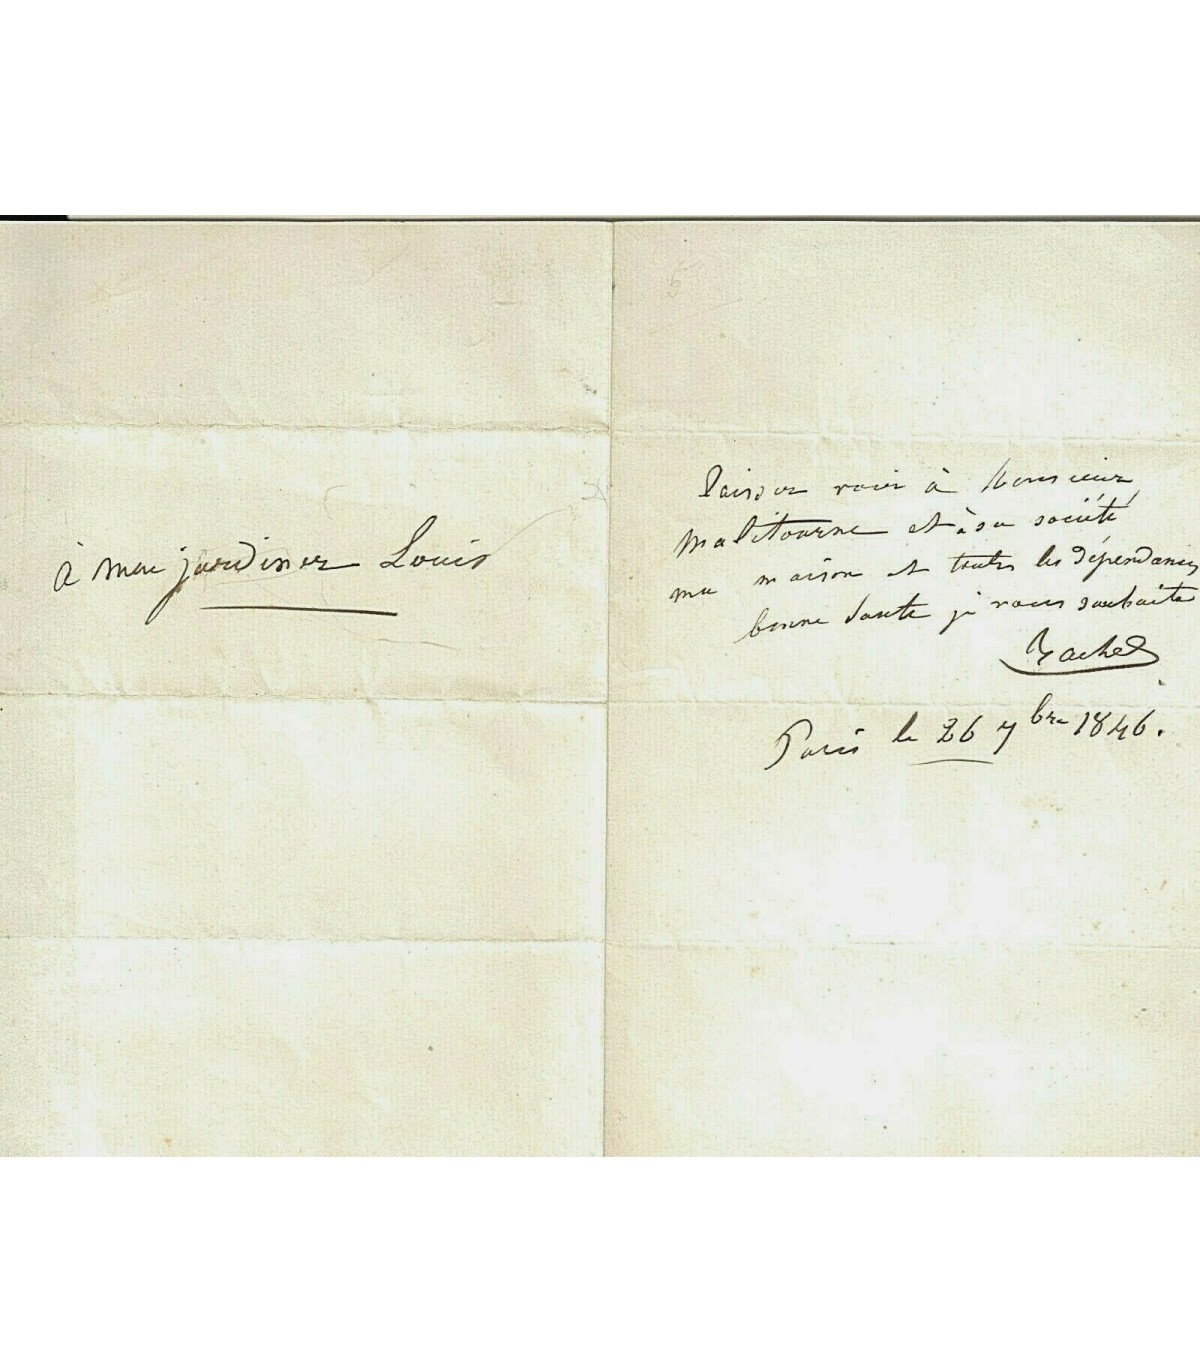 à mon jardinier Louis
Laissez voir à Monsieur
Malitourne et à sa société
ma maison et toutes les dépendances
bonne santé je vous souhaite
Rachel
Paris le 26 7bre 1846.